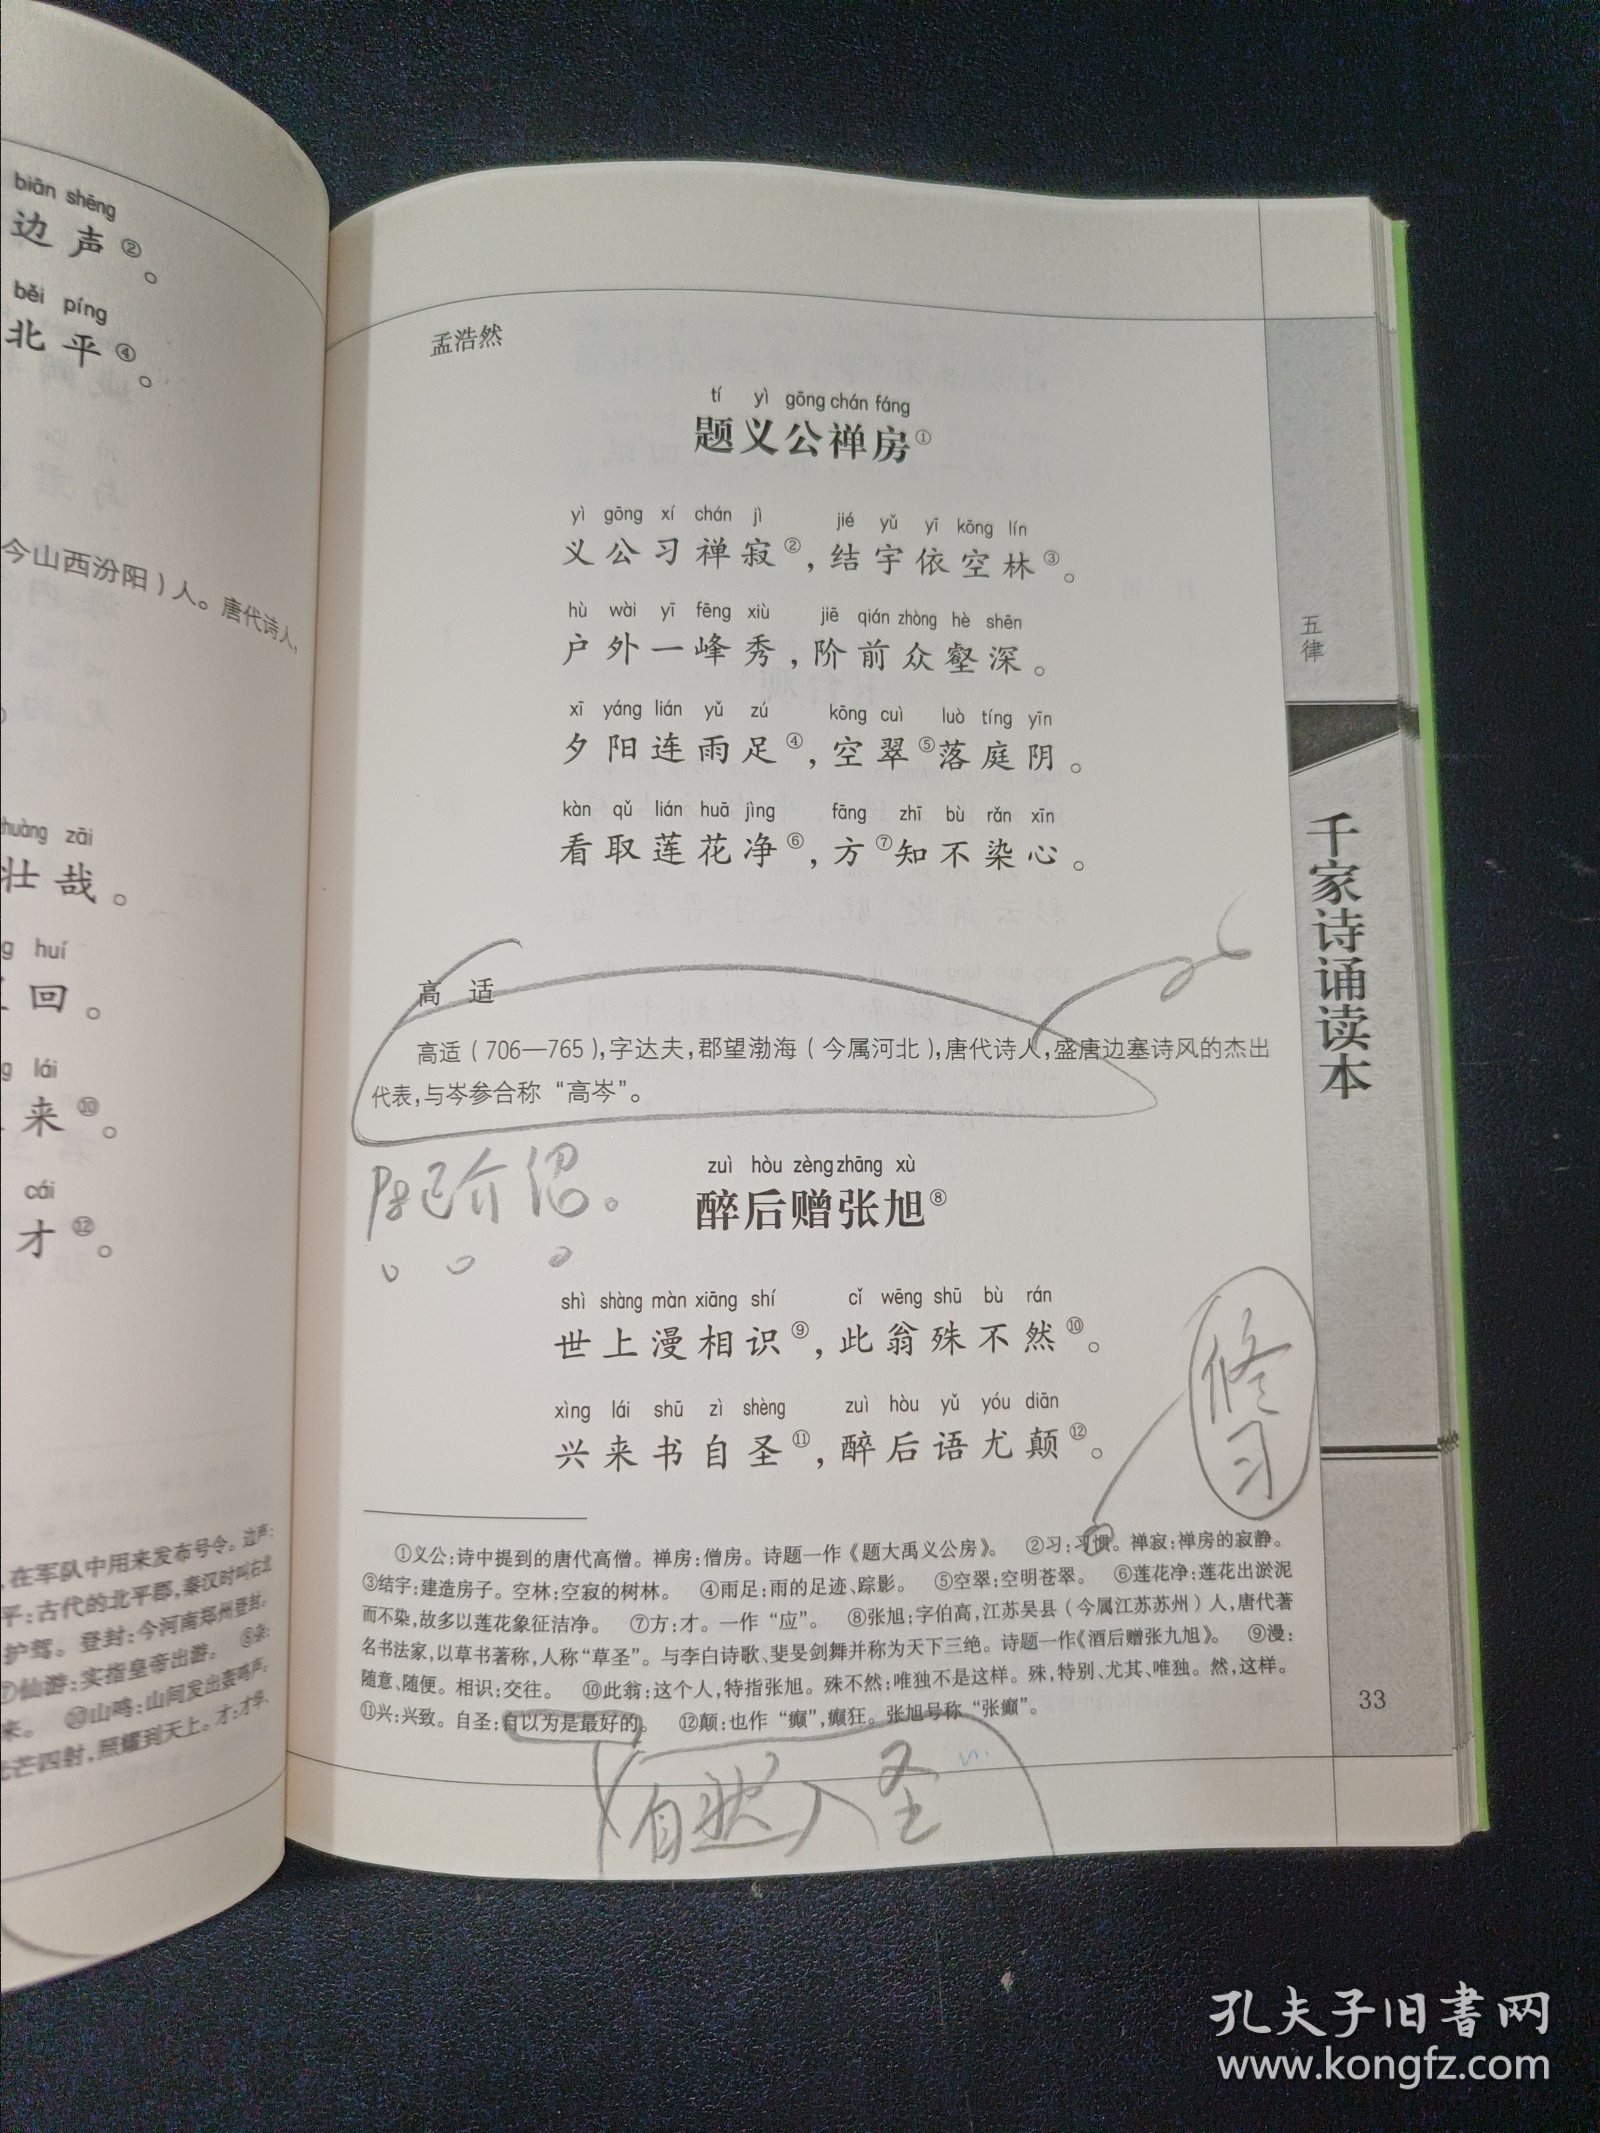 biān shēng
边声②。
běi píng
北平④。
今山西汾阳）人。唐代诗人，
zhuàng zāi
壮哉。
huí
回。
lái
来⑩。
cái
才⑫。
，在军队中用来发布号令。边声：
平：古代的北平郡，秦汉时叫右北
护驾。登封：今河南郑州登封。
⑦仙游：实指皇帝出游。
来。 ⑩山鸣：山间发出轰鸣声。
光芒四射，照耀到天上。才：才华。
孟浩然
tí yì gōng chán fáng
题义公禅房①
yì gōng xí chán jì jié yǔ yī kōng lín
义公习禅寂②，结宇依空林③。
hù wài yī fēng xiù jiē qián zhòng hè shēn
户外一峰秀，阶前众壑深。
xī yáng lián yǔ zú kōng cuì luò tíng yīn
夕阳连雨足④，空翠⑤落庭阴。
kàn qǔ lián huā jìng fāng zhī bù rǎn xīn
看取莲花净⑥，方⑦知不染心。
高 适
高适（706—765），字达夫，郡望渤海（今属河北），唐代诗人，盛唐边塞诗风的杰出
代表，与岑参合称“高岑”。
介绍。
zuì hòu zèng zhāng xù
醉后赠张旭⑧
shì shàng màn xiāng shí cǐ wēng shū bù rán
世上漫相识⑨，此翁殊不然⑩。
xìng lái shū zì shèng zuì hòu yǔ yóu diān
兴来书自圣⑪，醉后语尤颠⑫。
修习
①义公：诗中提到的唐代高僧。禅房：僧房。诗题一作《题大禹义公房》。 ②习：习惯。禅寂：禅房的寂静。
③结宇：建造房子。空林：空寂的树林。 ④雨足：雨的足迹、踪影。 ⑤空翠：空明苍翠。 ⑥莲花净：莲花出淤泥
而不染，故多以莲花象征洁净。 ⑦方：才。一作“应”。 ⑧张旭：字伯高，江苏吴县（今属江苏苏州）人，唐代著
名书法家，以草书著称，人称“草圣”。与李白诗歌、斐旻剑舞并称为天下三绝。诗题一作《酒后赠张九旭》。 ⑨漫：
随意、随便。相识：交往。 ⑩此翁：这个人，特指张旭。殊不然：唯独不是这样。殊，特别、尤其、唯独。然，这样。
⑪兴：兴致。自圣：自以为是最好的。 ⑫颠：也作“癫”，癫狂。张旭号称“张癫”。
自然入圣
五律
千家诗诵读本
33
孔夫子旧书网
www.kongfz.com